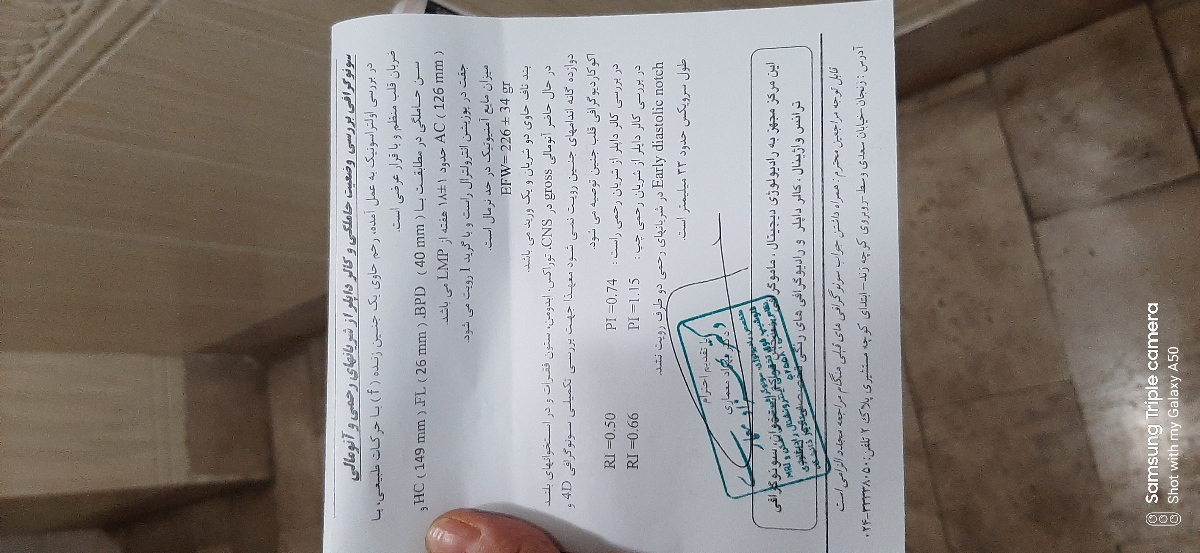 سونوگرافی بررسی وضعیت حاملگی و کالر داپلر از شریانهای رحمی و آنومالی
در بررسی اولتراسونیک به عمل آمده، رحم حاوی یک جنین زنده ( f ) با حرکات طبیعی، با
ضربان قلب منظم و با قرار عرضی است.
سن حاملگی در مطابقت با BPD ( 40 mm ) ,FL ( 26 mm ) ,HC ( 149 mm ) و
AC ( 126 mm ) حدود ۱±۱۸ هفته از LMP می باشد.
جفت در پوزیشن آنترولترال راست و با گرید I رویت می شود.
میزان مایع آمنیوتیک در حد نرمال است.
EFW= 226 ± 34 gr
بند ناف حاوی دو شریان و یک ورید می باشد.
در حال حاضر آنومالی gross در CNS، توراکس، ابدومن، ستون فقرات و در استخوانهای بلند
دوازده گانه اندامهای جنین رویت نمی شود معهذا جهت بررسی تکمیلی سونوگرافی 4D و
اکوکاردیوگرافی قلب جنین توصیه می شود.
در بررسی کالر داپلر از شریان رحمی راست : PI =0.74 RI =0.50
در بررسی کالر داپلر از شریان رحمی چپ : PI =1.15 RI =0.66
Early diastolic notch در شریانهای رحمی دو طرف رویت نشد.
طول سرویکس حدود ۳۳ میلیمتر است.
با تقدیم احترام
دکتر بهزاد معماری
این مرکز مجهز به رادیولوژی دیجیتال ، ماموگرافی
سونوگرافی
ترانس واژینال، کالر داپلر و رادیوگرافی های رنگی
قابل توجه مراجعین محترم : همراه داشتن جواب سونوگرافی های قبلی هنگام مراجعه مجدد الزامی است
آدرس : زنجان-خیابان سعدی وسط -روبروی کوچه زند- ابتدای کوچه
پلاک ۲ تلفن: ۳۳۳۳۸۰۵۰-۰۲۴
Samsung Triple camera
Shot with my Galaxy A50